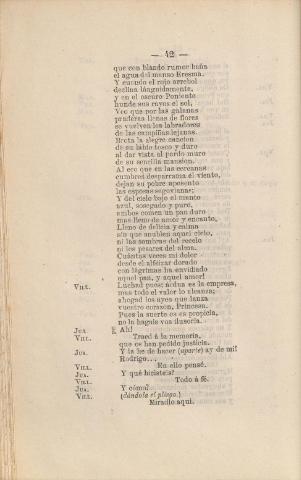 — 42 —
que con blando rumor baña
el agua del manso Eresma.
Y cuando el rojo arrebol
declina lánguidamente,
y en el oscuro Poniente
hunde sus rayos el sol,
Veo que por las galanas
praderas llenas de flores
se vuelven los labradores
de las campiñas lejanas.
Brota la alegre cancion
de su labio tosco y duro
al dar vista al pardo muro
de su sencilla mansion.
Al eco que en las cercanas
cumbres desparrama el viento,
dejan su pobre aposento
las esposas segovianas;
Y del cielo bajo el manto
azul, sosegado y puro,
ambos comen un pan duro
mas lleno de amor y encanto,
Lleno de delicia y calma
sin que anublen aquel cielo,
ni las sombras del recelo
ni los pesares del alma.
Cuántas veces mi dolor
desde el alféizar dorado
con lágrimas ha envidiado
aquel pan, y aquel amor!
VILL. Luchad pues: árdua es la empresa,
mas todo el valor lo alcanza;
ahogad los ayes que lanza
vuestro corazon, Princesa.
Pues la suerte os es propicia,
no la hagais vos ilusoria.
JUA. Ah!
VILL. Traed á la memoria,
que os han pedido justicia.
JUA. Y la he de hacer (aparte) ay de mi!
Rodrigo...
VILL. En ello pensé.
JUA. Y qué hicisteis?
VILL. Todo á fé.
JUA. Y cómo?
VILL. (dándole el pliego.)
Miradlo aqui.